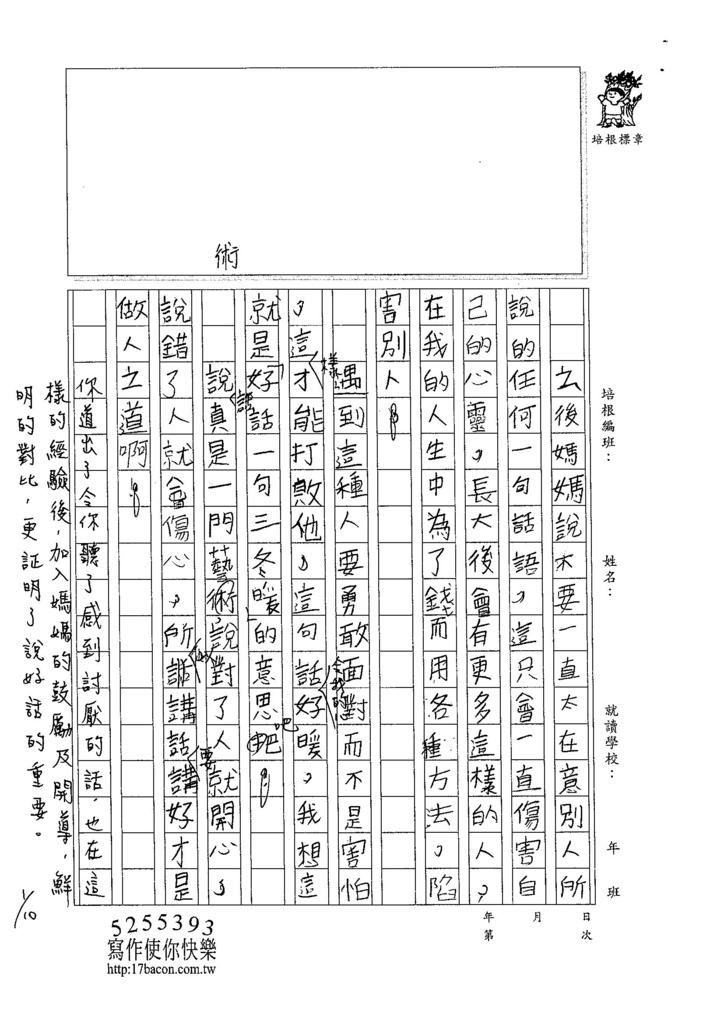 培根標章
培根編班：
姓名：
就讀學校：
年 班
年 月 日
第 次
術
么後媽媽說不要一直太在意別人所
說的任何一句話語，這只會一直傷害自
己的心靈，長大後會有更多這樣的人，
在我的人生中為了錢而用各種方法，陷
害別人。
遇到這種人要勇敢面對而不是害怕
，這樣才能打敗他，這句話令我的好暖，我想這
就是「好話一句三冬暖」的意思吧吧。
說話真是一門藝術，說對了人就開心，
說錯了人就會傷心，所以話講話要講好才是
做人之道啊。
你道出了令你聽了感到討厭的話，也在這
樣的經驗後，加入媽媽的鼓勵及開導，鮮
明的對比，更証明了說好話的重要。
1/10
5255393
寫作使你快樂
http:17bacon.com.tw